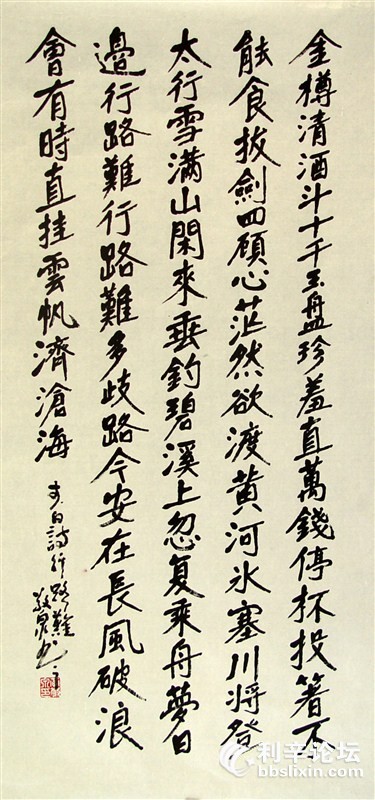 金樽清酒斗十千玉盘珍羞直萬錢停杯投箸不
能食拔劍四顧心茫然欲渡黄河冰塞川将登
太行雪滿山閑來垂釣碧溪上忽复乘舟夢日
邊行路難行路難多歧路今安在長風破浪
會有時直挂雲帆濟滄海
李白詩行路難
书
利辛论坛
bbslixin.com